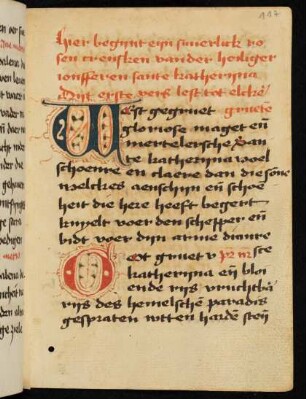 197
Hier begynt eyn suuerlick ro
sen crensken van der heiliger
ionfferen sante katheryna
Dyt erste vers lest tot elcke
gruete
West gegruet
gloriose maget eñ
mertelersche San
te katheryna wael
schoenre en claere dan die sonne
welckes aenschyn eñ schoe
heit die here heeft begert
knyelt voer den schepper eñ
bidt voer dyn arme dinare
Got gruet v
katheryna eñ bloe
ende rijs vruchtba
rijs des hemelschen paradis
gespraten wtten harden steyn